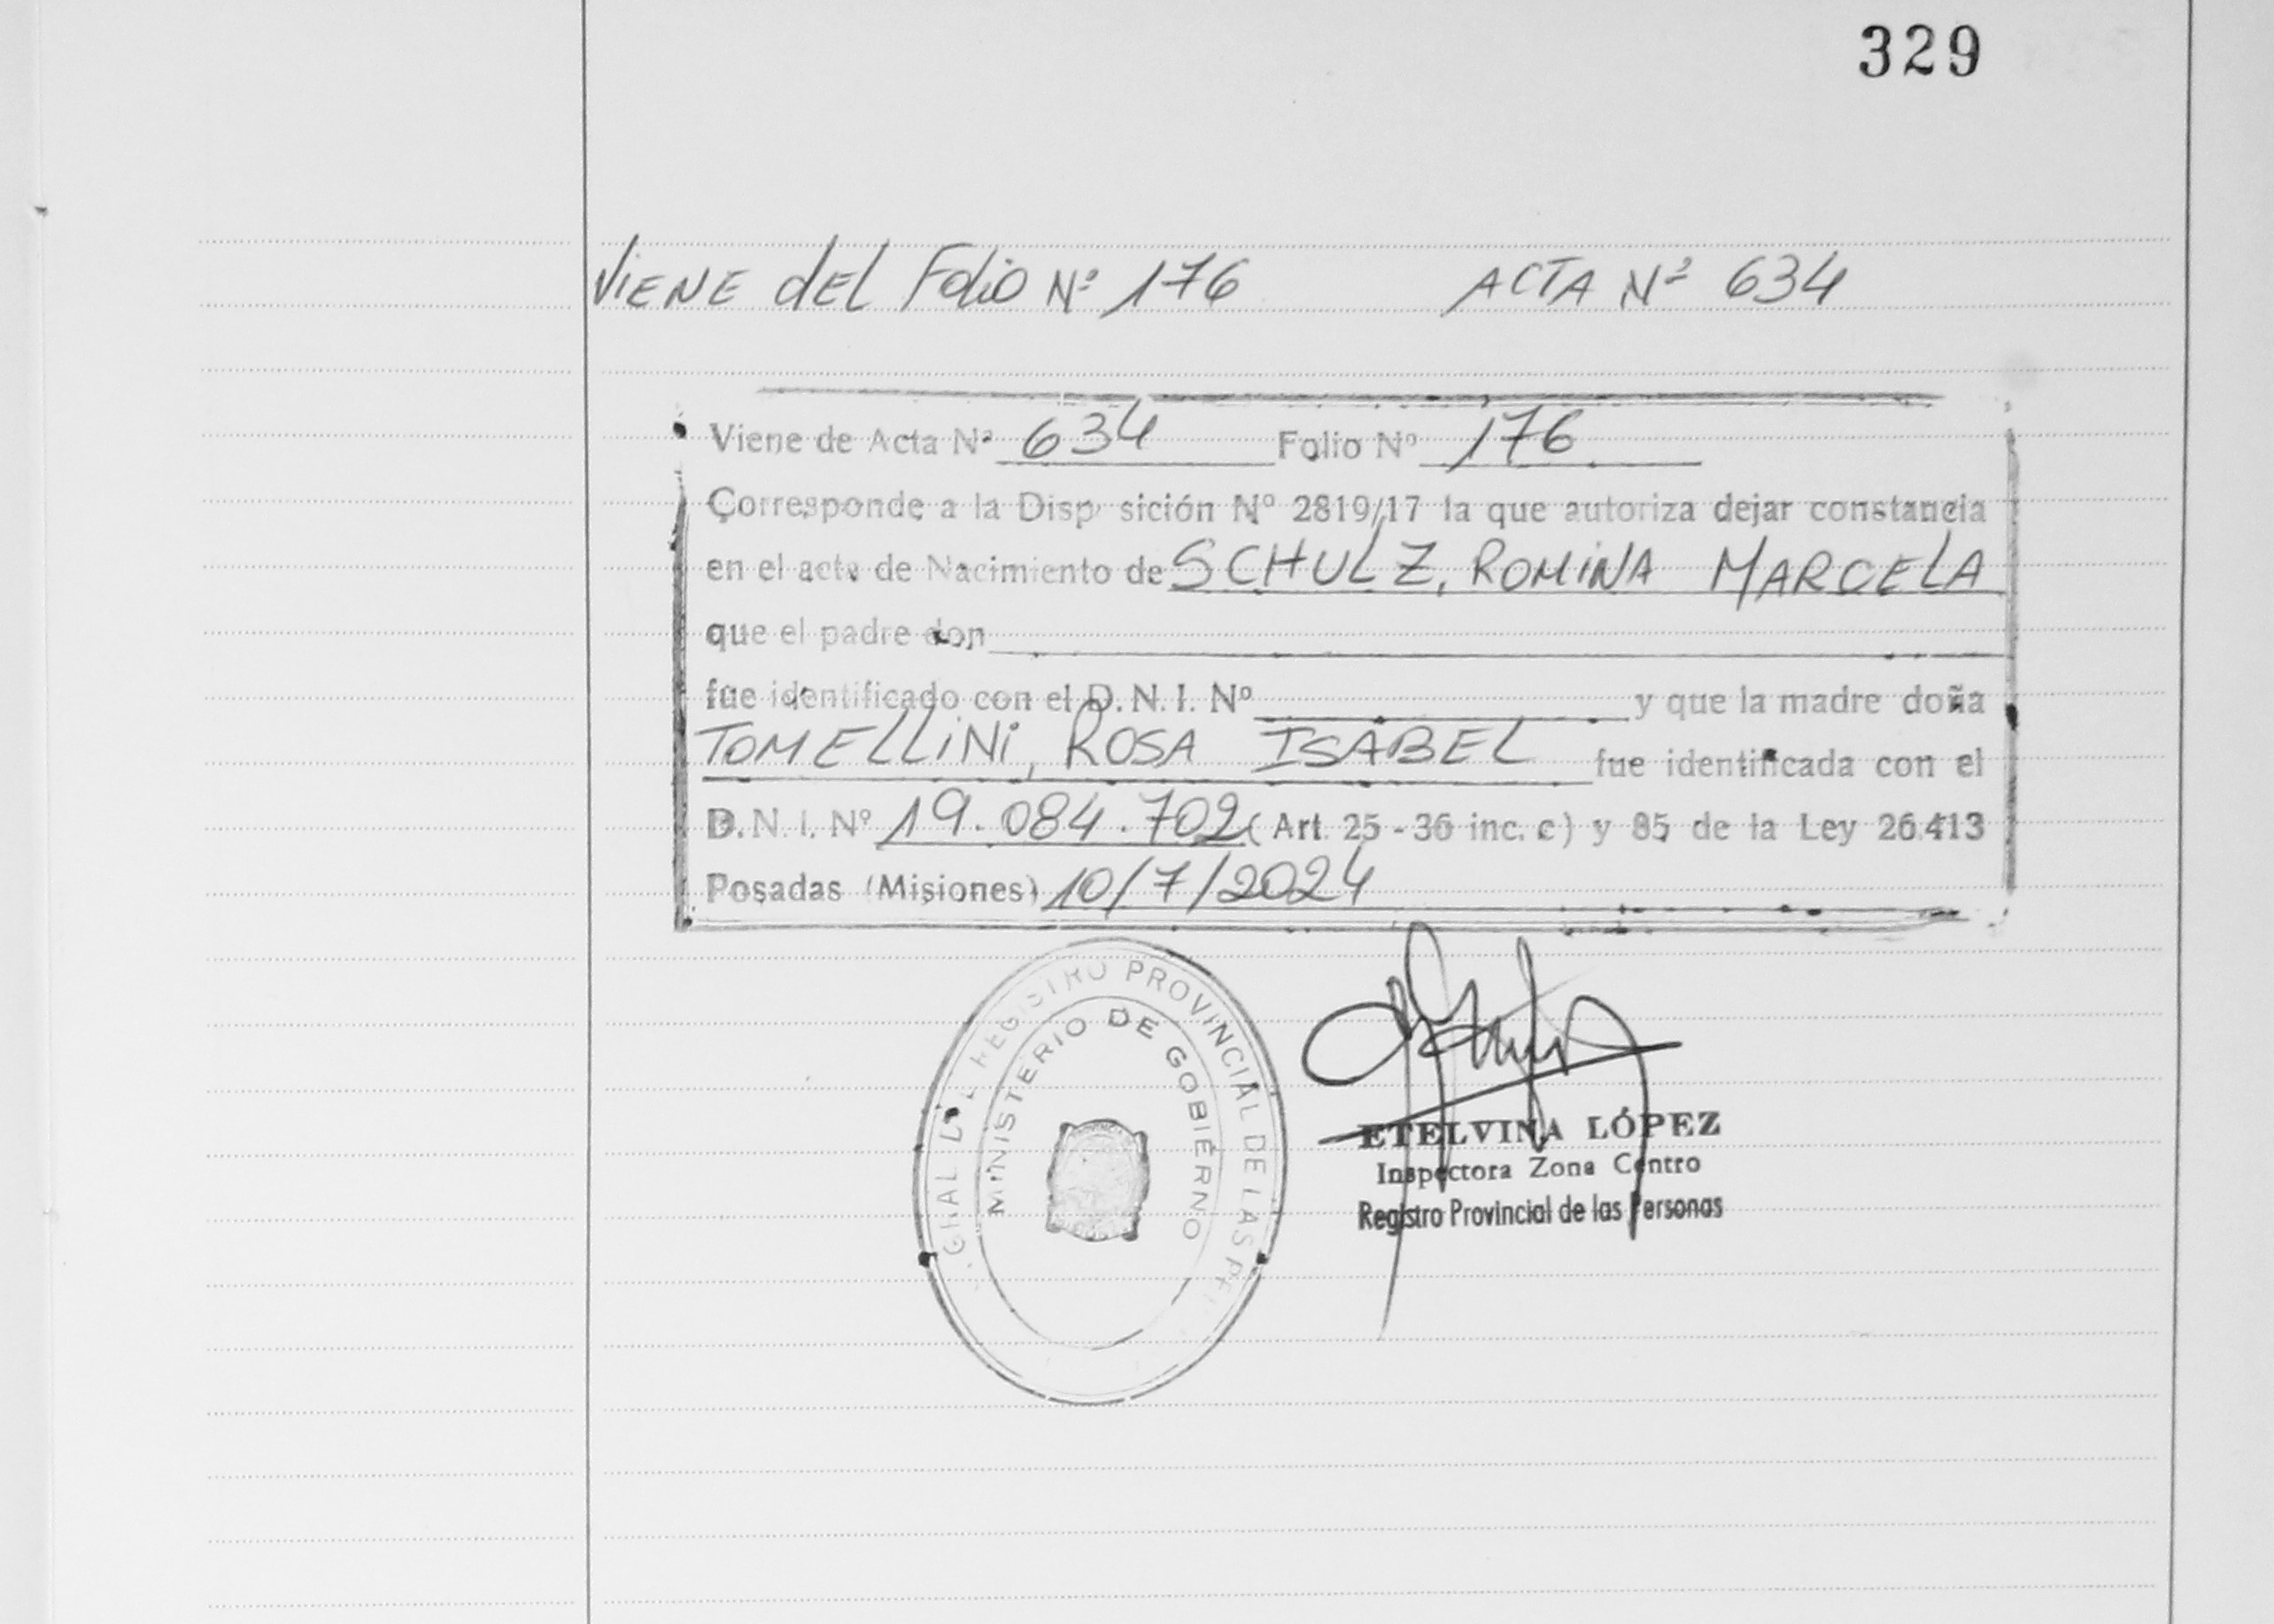 329
Viene del Folio Nº 176 ACTA Nº 634
Viene de Acta Nº 634 Folio Nº 176
Corresponde a la Disp sición Nº 2819/17 la que autoriza dejar constancia
en el acta de Nacimiento de SCHULZ, ROMINA MARCELA
que el padre don
fue identificado con el D.N.I. Nº y que la madre doña
TOMELLINI, ROSA ISABEL fue identificada con el
D.N.I. Nº 19.084.702 (Art. 25 - 36 inc. c) y 85 de la Ley 26.413
Posadas (Misiones) 10/7/2024
GRAL DE REGISTRO PROVINCIAL DE LAS PE
MINISTERIO DE GOBIERNO
ETELVINA LÓPEZ
Inspectora Zona Centro
Registro Provincial de las Personas